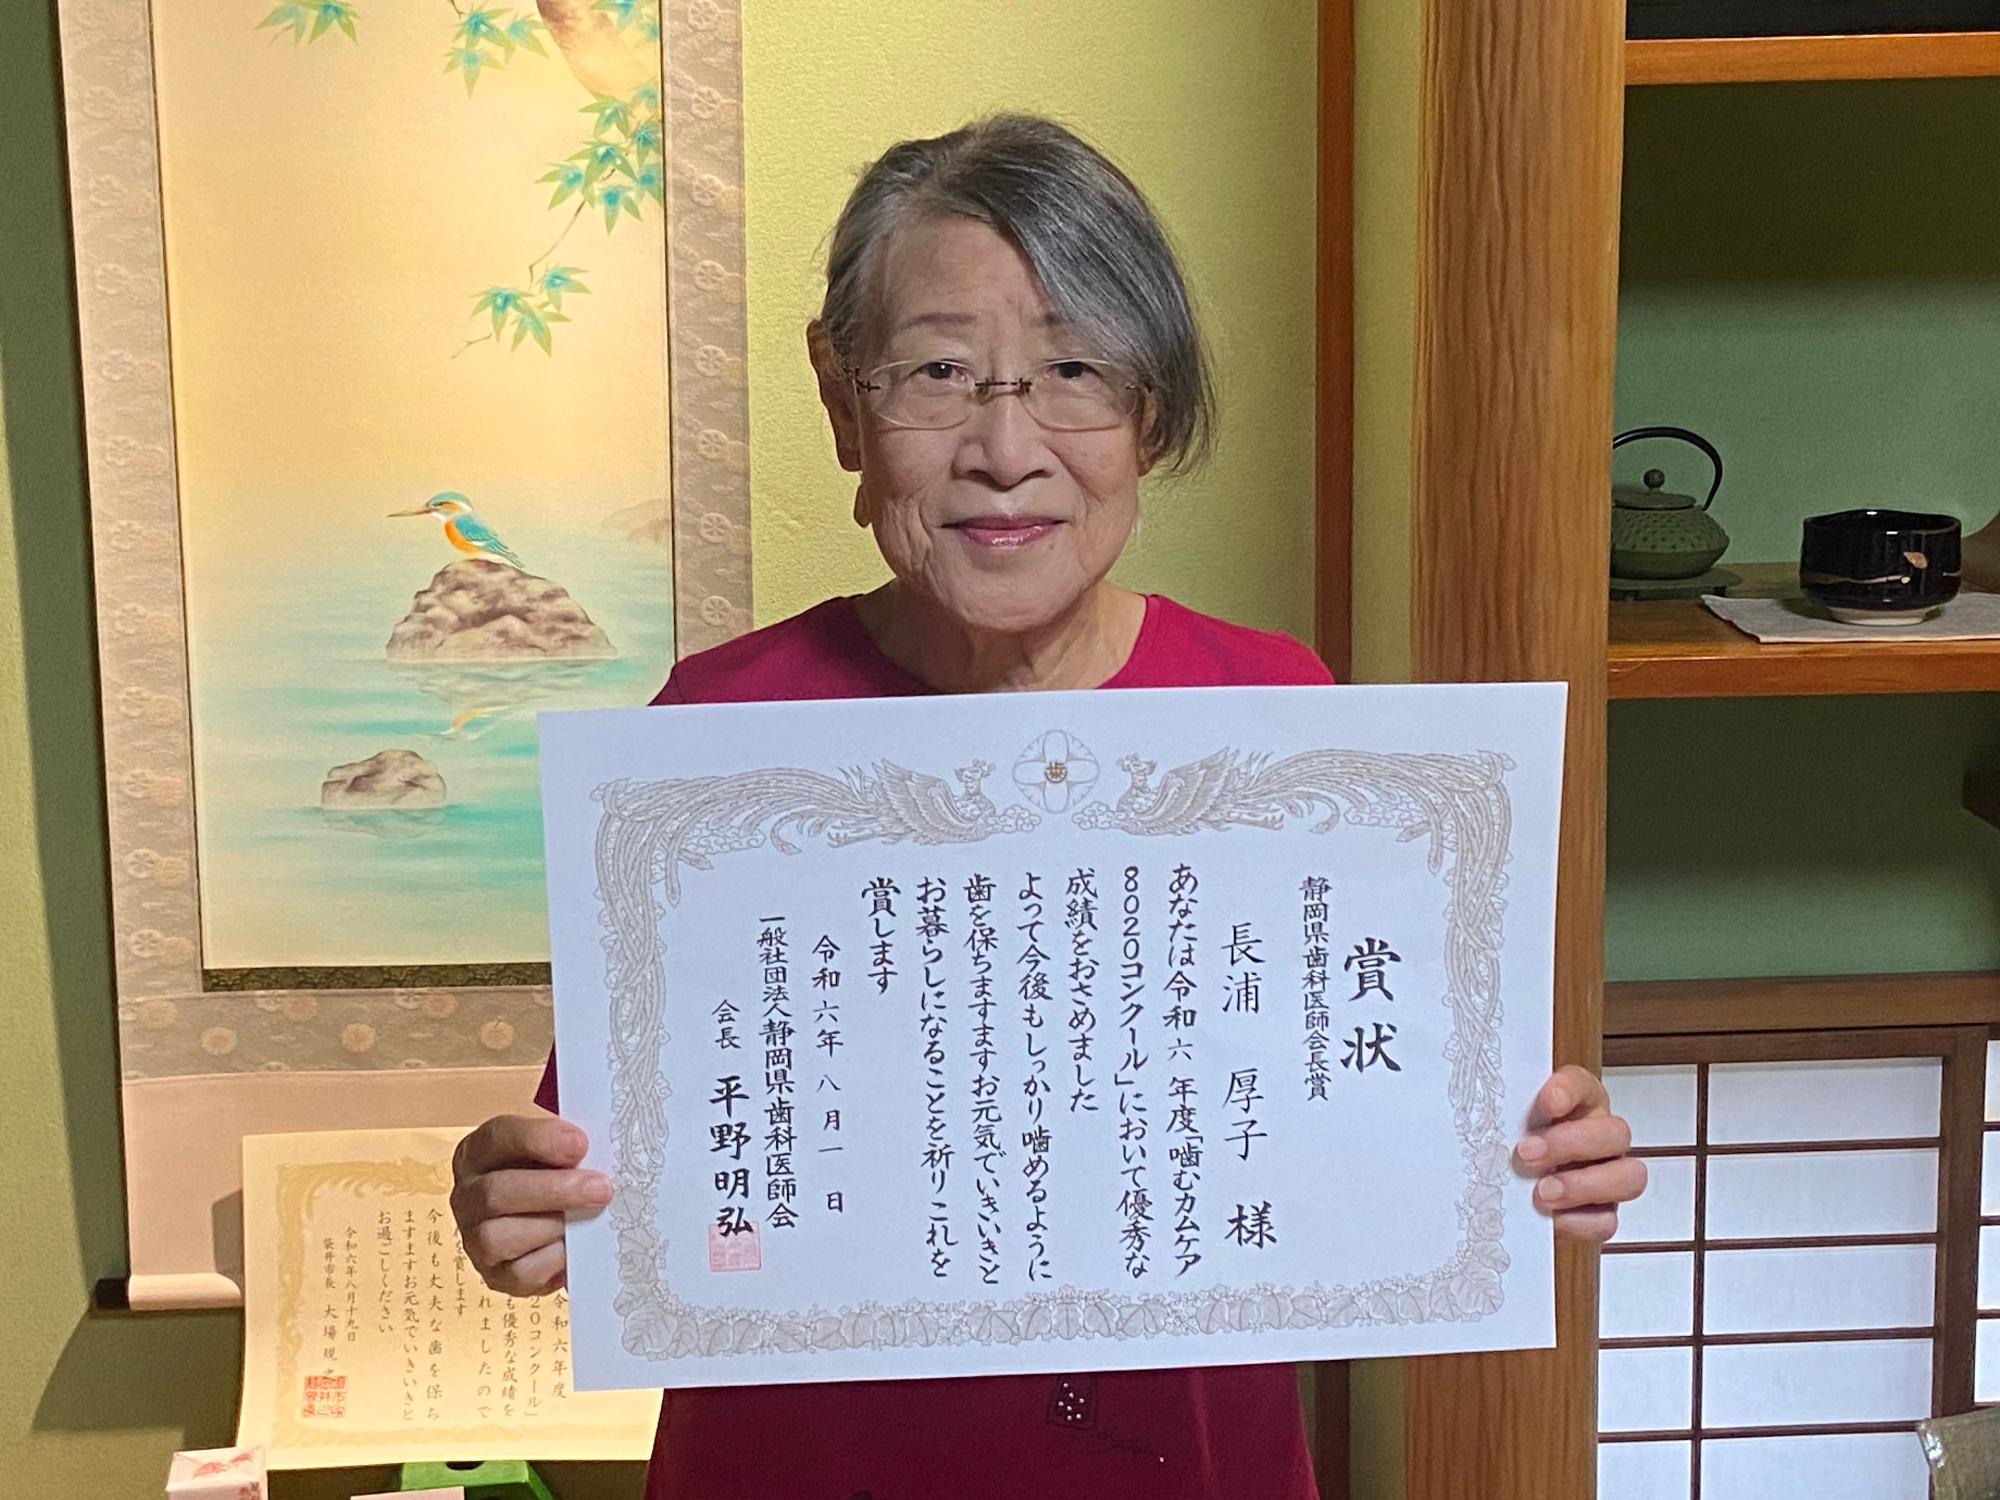 賞状
静岡県歯科医師会長賞
長浦 厚子 様
あなたは令和六年度「噛むカムケア
8020コンクール」において優秀な
成績をおさめました
よって今後もしっかり噛めるように
歯を保ちますますお元気でいきいきと
お暮らしになることを祈りこれを
賞します
令和六年八月一日
一般社団法人静岡県歯科医師会
会長 平野明弘
歯
令和六年度
20コンクール」
も優秀な成績を
れましたので
を賞します
今後も丈夫な歯を保ち
ますますお元気でいきいきと
お過ごしください
令和六年八月十九日
袋井市長 大場規之